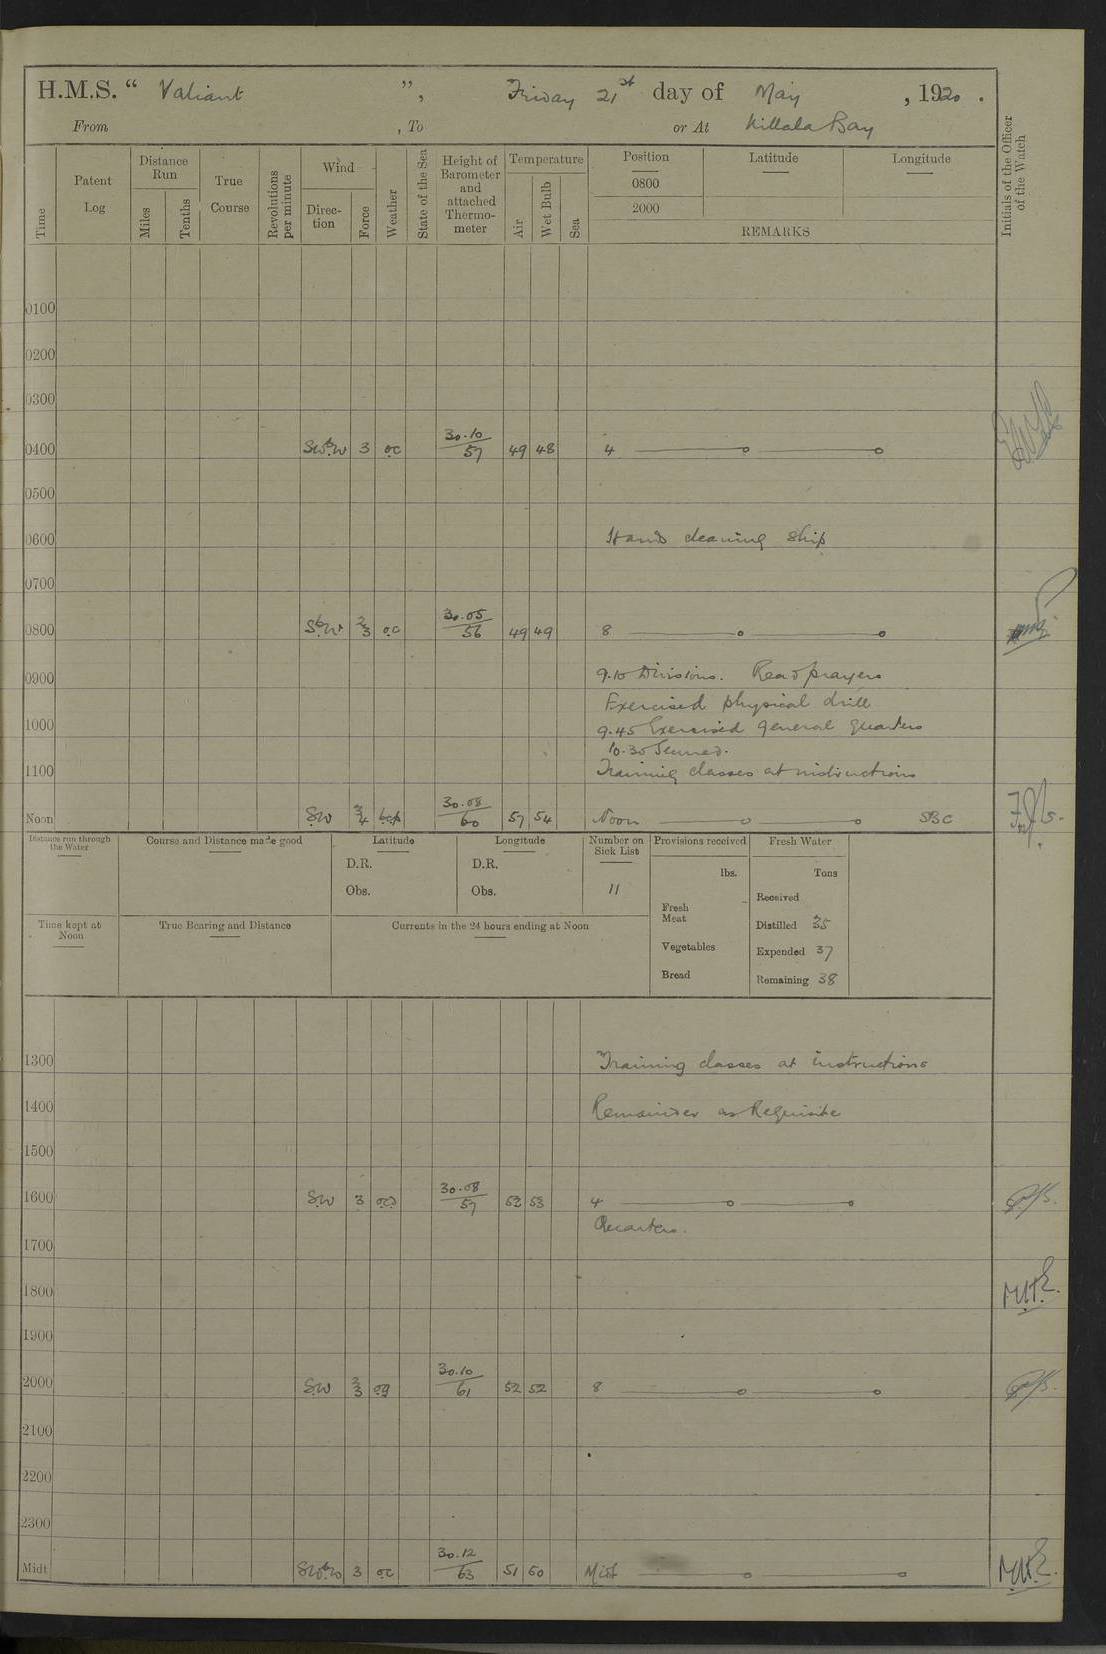 H.M.S. “ Valiant ”, Friday 21st day of May , 1920 .
From , To or At Killala Bay
Time Patent Log Distance Run Miles Tenths True Course Revolutions per minute Wind Direc-tion Force Weather State of the Sea Height of Barometer and attached Thermo-meter Temperature Air Wet Bulb Sea Position 0800 2000 Latitude Longitude
REMARKS
Initials of the Officer of the Watch
0100
0200
0300
0400 SWbW 3 oc 30.10/57 49 48 4
0500
0600 Hands cleaning Ship
0700
0800 SbW 2/3 oc 30.05/56 49 49 8
0900 9.10 Divisions. Read prayers
Exercised physical drill
1000 9.45 Exercised general quarters
10.30 Secured.
1100 Training classes at instructions
Noon SW 3/4 bcp 30.08/60 57 54 Noon SBC
Distance run through the Water Course and Distance made good Latitude Longitude Number on Sick List Provisions received Fresh Water
D.R. D.R. lbs. Tons
Obs. Obs. 11 Received
Fresh Meat
Time kept at Noon True Bearing and Distance Currents in the 24 hours ending at Noon Distilled 35
Vegetables Expended 37
Bread Remaining 38
1300 Training classes at instructions
1400 Remainder as Requisite
1500
1600 SW 3 30.08/57 52 53 4
Quarters.
1700
1800 M.H.E.
1900
2000 SW 2/3 og 30.10/61 52 52 8
2100
2200
2300
Midt SWbW 3 oc 30.12/63 51 50 Midt M.H.E.